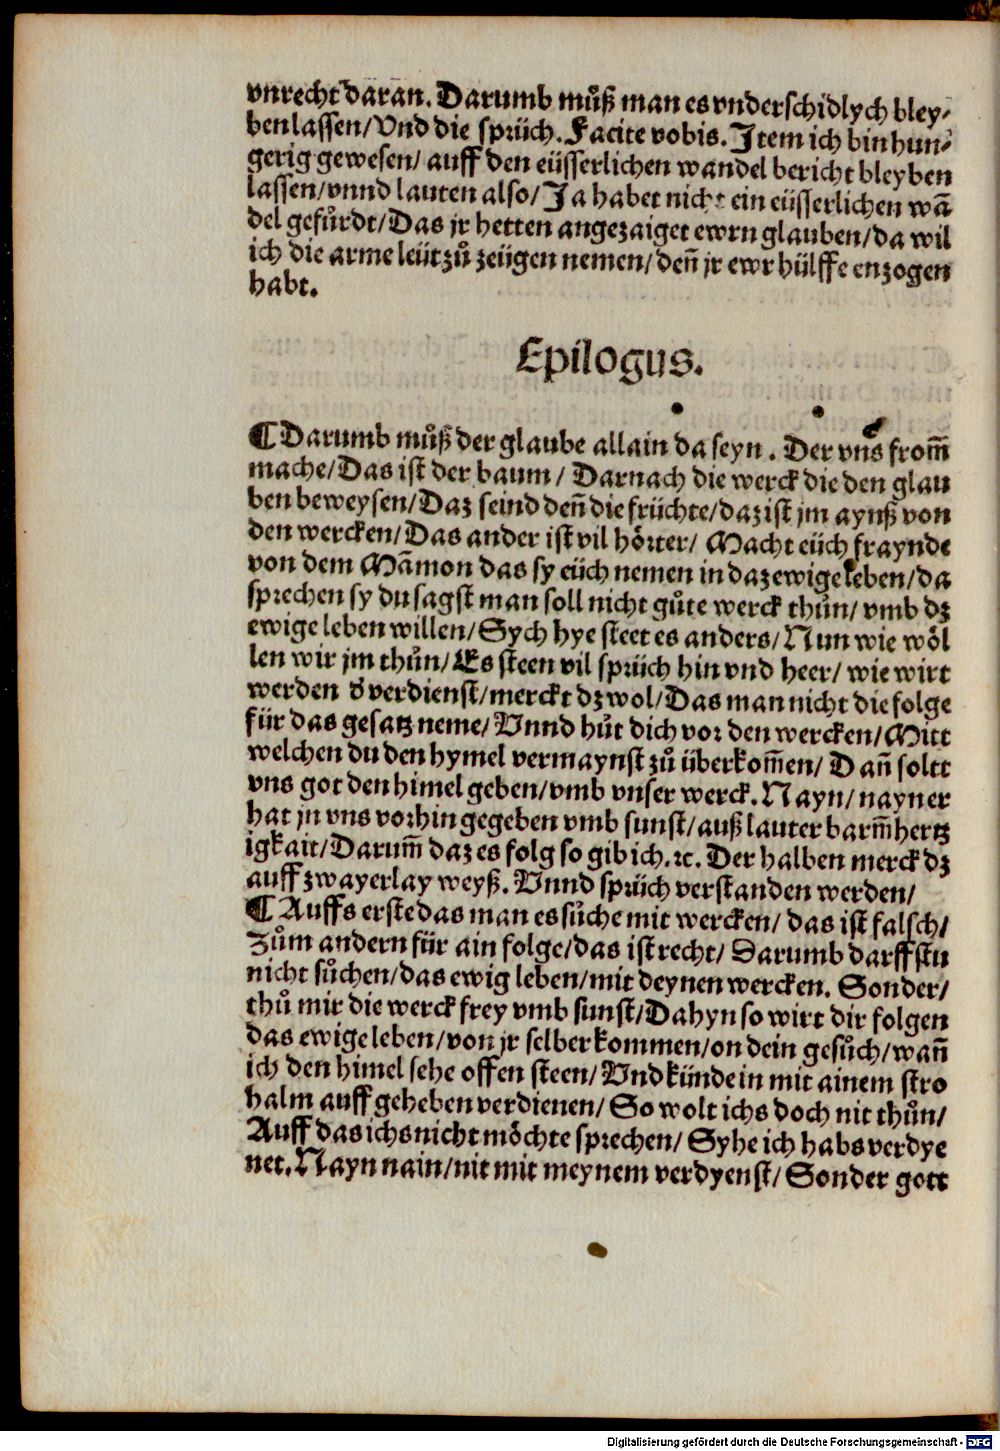 vnrecht daran. Darumb můß man es vnderschidlych bley-
ben lassen/ Vnd die sprüch. Facite vobis. Item ich bin hun-
gerig gewesen/ auff den eüsserlichen wandel bericht bleyben
lassen/ vnnd lauten also/ Ja habet nicht ein eüsserlichen wã
del gefůrdt/ Das jr hetten angezaiget ewrn glauben/ da wil
ich die arme leüt zů zeügen nemen/ deñ jr ewr hülffe enzogen
habt.
Epilogus.
¶ Darumb můß der glaube allain da seyn. Der vns from̃
mache/ Das ist der baum/ Darnach die werck die den glau
ben beweysen/ Daz seind deñ die früchte/ daz ist jm aynß von
den wercken/ Das ander ist vil hörter/ Macht eüch fraynde
von dem Mãmon das sy eüch nemen in daz ewige leben/ da
sprechen sy du sagst man soll nicht gůte werck thůn/ vmb dz
ewige leben willen/ Sych hye steet es anders/ Nun wie wöl
len wir jm thůn/ Es steen vil sprüch hin vnd heer/ wie wirt
werden d̕ verdienst/ merckt dz wol/ Das man nicht die folge
für das gesatz neme/ Vnnd hůt dich vor den wercken/ Mitt
welchen du den hymel vermaynst zů überkom̃en/ Dañ soltt
vns got den himel geben/ vmb vnser werck. Nayn/ nayn er
hat jn vns vorhin gegeben vmb sunst/ auß lauter barm̃hertz
igkait/ Darum̃ daz es folg so gib ich. ꝛc. Der halben merck dz
auff zwayerlay weyß. Vnnd sprüch verstanden werden/
¶ Auffs erste das man es sůche mit wercken/ das ist falsch/
Zům andern für ain folge/ das ist recht/ Darumb darffstu
nicht sůchen/ das ewig leben/ mit deynen wercken. Sonder/
thů mir die werck frey vmb sunst/ Dahyn so wirt dir folgen
das ewige leben/ von jr selber kommen/ on dein gesůch/ wañ
ich den himel sehe offen steen/ Vnd künde in mit ainem stro
halm auff geheben verdienen/ So wolt ichs doch nit thůn/
Auff das ichs nicht möchte sprechen/ Syhe ich habs verdye
net. Nayn nain/ nit mit meynem verdyenst/ Sonder gott
Digitalisierung gefördert durch die Deutsche Forschungsgemeinschaft - DFG